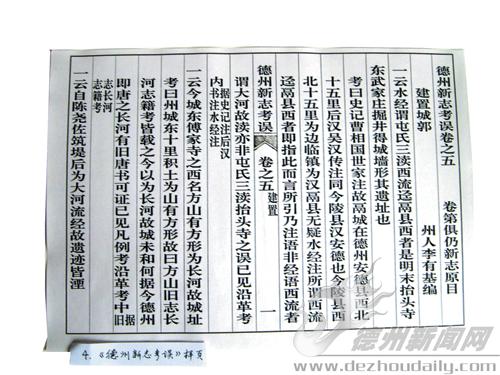 德州新志考误卷之五
卷第俱仍新志原目
建置城郭
州人李有基编
一云水经谓屯氏三渎西流迳鬲县西者是明末抬头寺
东武家庄掘井得城墙形其遗址也
考曰史记曹相国世家注故鬲城在德州安德县西北
十五里后汉吴汉传注同今陵县汉安德也今陵县西
北十五里为边临镇为汉鬲县无疑水经注所谓西流
迳鬲县西者即指此而言所引乃注语非经语西流者
德州新志考误 卷之五 建置 一
谓大河故渎亦非屯氏三渎抬头寺之误已见沿革考
据史记注后汉
内书注水经注
一云今城东傅家寺之西名方山有方形为长河故城址
考曰州城东十里积土为山有方形故曰方山旧志长
河志籍考皆载之今以为长河故城未和何据今德州
即唐之长河有旧唐书可证已见凡例考沿革考中旧据
志长河
志籍考
一云自陈尧佐筑堤后为大河流经故遗迹皆湮
4.《德州新志考误》样页
德州新闻网
www.dezhoudaily.com